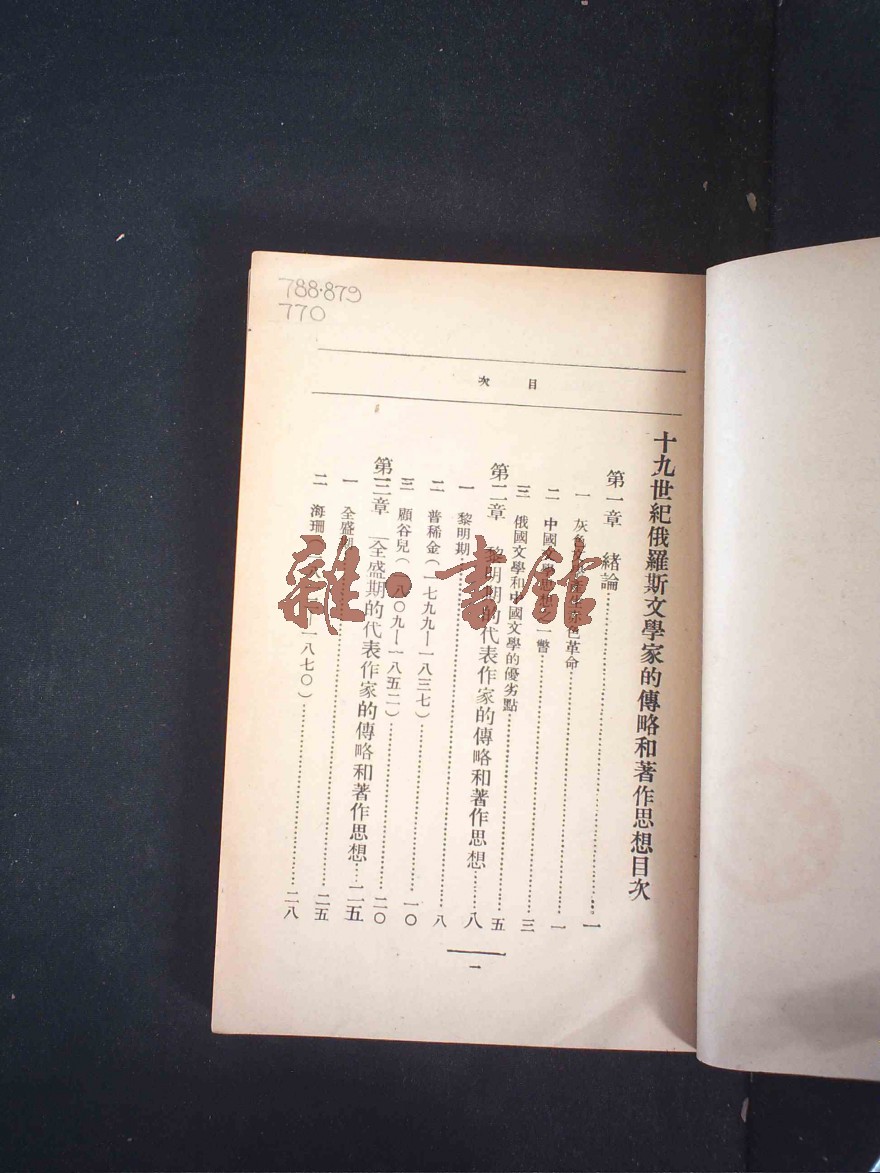 788·879
770
目次
十九世紀俄羅斯文學家的傳略和著作思想目次
第一章 緒論……一
一 灰色 革命……一
二 中國文學 之一瞥……三
三 俄國文學和中國文學的優劣點……五
第二章 黎明期的代表作家的傳略和著作思想……八
一 黎明期……八
二 普稀金(一七九九—一八三七)……一〇
三 顧谷兒(一八〇九—一八五二)……二〇
第三章 全盛期的代表作家的傳略和著作思想……二五
一 全盛期……二五
二 海珊 一八七〇)……二八
一
雜·書館